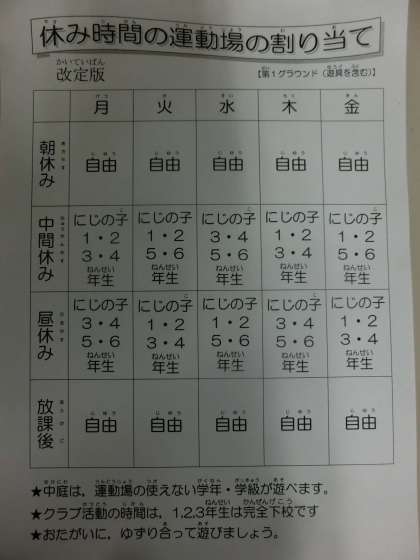 休み時間の運動場の割り当て
かいていばん
改定版
【第1グラウンド（遊具を含む）】
月 火 水 木 金
朝休み 自由 自由 自由 自由 自由
中間休み
にじの子 にじの子 にじの子 にじの子 にじの子
1・2 1・2 3・4 1・2 3・4
3・4 5・6 5・6 5・6 5・6
ねんせい ねんせい ねんせい ねんせい ねんせい
年生 年生 年生 年生 年生
昼休み
にじの子 にじの子 にじの子 にじの子 にじの子
3・4 1・2 1・2 3・4 1・2
5・6 3・4 5・6 5・6 3・4
ねんせい ねんせい ねんせい ねんせい ねんせい
年生 年生 年生 年生 年生
放課後 自由 自由 自由 自由 自由
★中庭は，運動場の使えない学年・学級が遊べます。
★クラブ活動の時間は，1,2,3年生は完全下校です
★おたがいに，ゆずり合って遊びましょう。